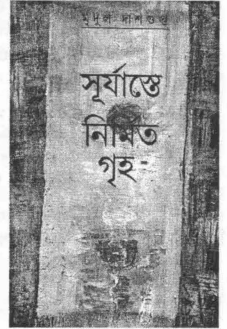 মৃদুল দাশগুপ্ত
সূর্যাস্তে
নির্মিত
গৃহ